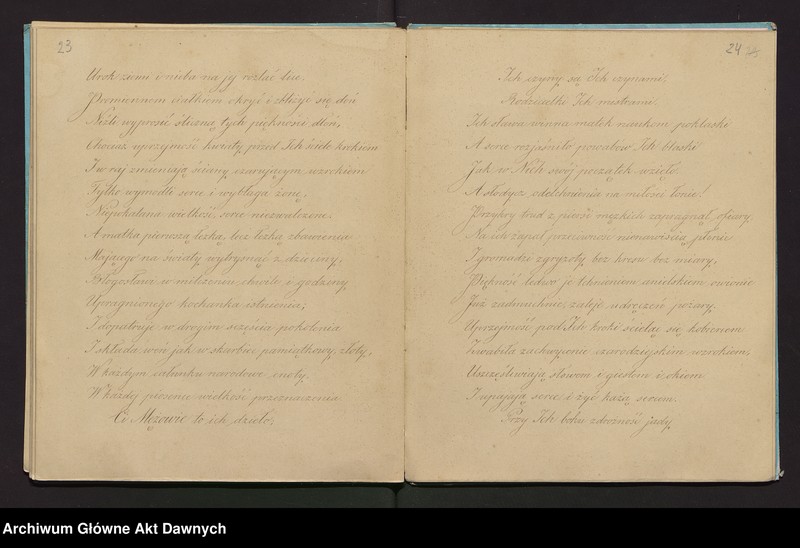 23
Urok ziemi i nieba na jej rozlać lice.
Promieniem wielkiem okryć i zbliżyć się doń
Nieśli wyprosić śliczną tych piękności dłoń,
Chociaż uprzejmość kwiaty przed Ich ściele krokiem
I w raj zmieniają ściany czarującym wzrokiem
Tylko wymodli serce i wybłaga żonę.
Niepokalana wielkość, serce niezwalczone.
A matka pierwszą łezką, lecz łezką zbawienia
Mającego na światy wytrysnąć z dzieciny,
Błogosława w milczeniu chwile i godziny
Upragnionego kochanka istnienia;
I dopatruje w drogim szczęścia pokolenia
I składa woń jak w skarbiec pamiątkowy, złoty,
W każdym całunku narodowe cnoty
W każdy piosence wielkość przeznaczenia
Co Mężowie to ich dzieło;
24
Ich czyny są Ich czynami.
Rodzicielki Ich mistrami.
Ich sława winna matek naukom poklaski
A serca rozjaśniło powabów Ich blaski
Jak w Nich swój początek wzięło
A słodycz odetchnienia na miłości łonie!
Przykry trud z piersi męzkich zaprzęgnął ofiary
Na ich zapał przeciwnose nienawiścią płonie
I gromadzi zgryzoty bez kresu bez miary,
Piękność ledwo je tchnieniem anielskiem owionie
Już zadmuchnie, zaleje udręczeń pożary
Uprzejmość pod Ich kroki ścieląc się kobiercem
Zwabiła zachwycenie czarodziejskim wzrokiem,
Uszczęśliwiają słowem i giestem i okiem
I upajają serce i żyć każą sercem.
Przy Ich boku zdrożność jady
Archiwum Główne Akt Dawnych